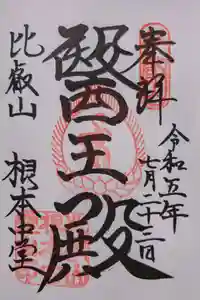 奉拝
令和五年
七月二十三日
醫王殿
比叡山
根本中堂